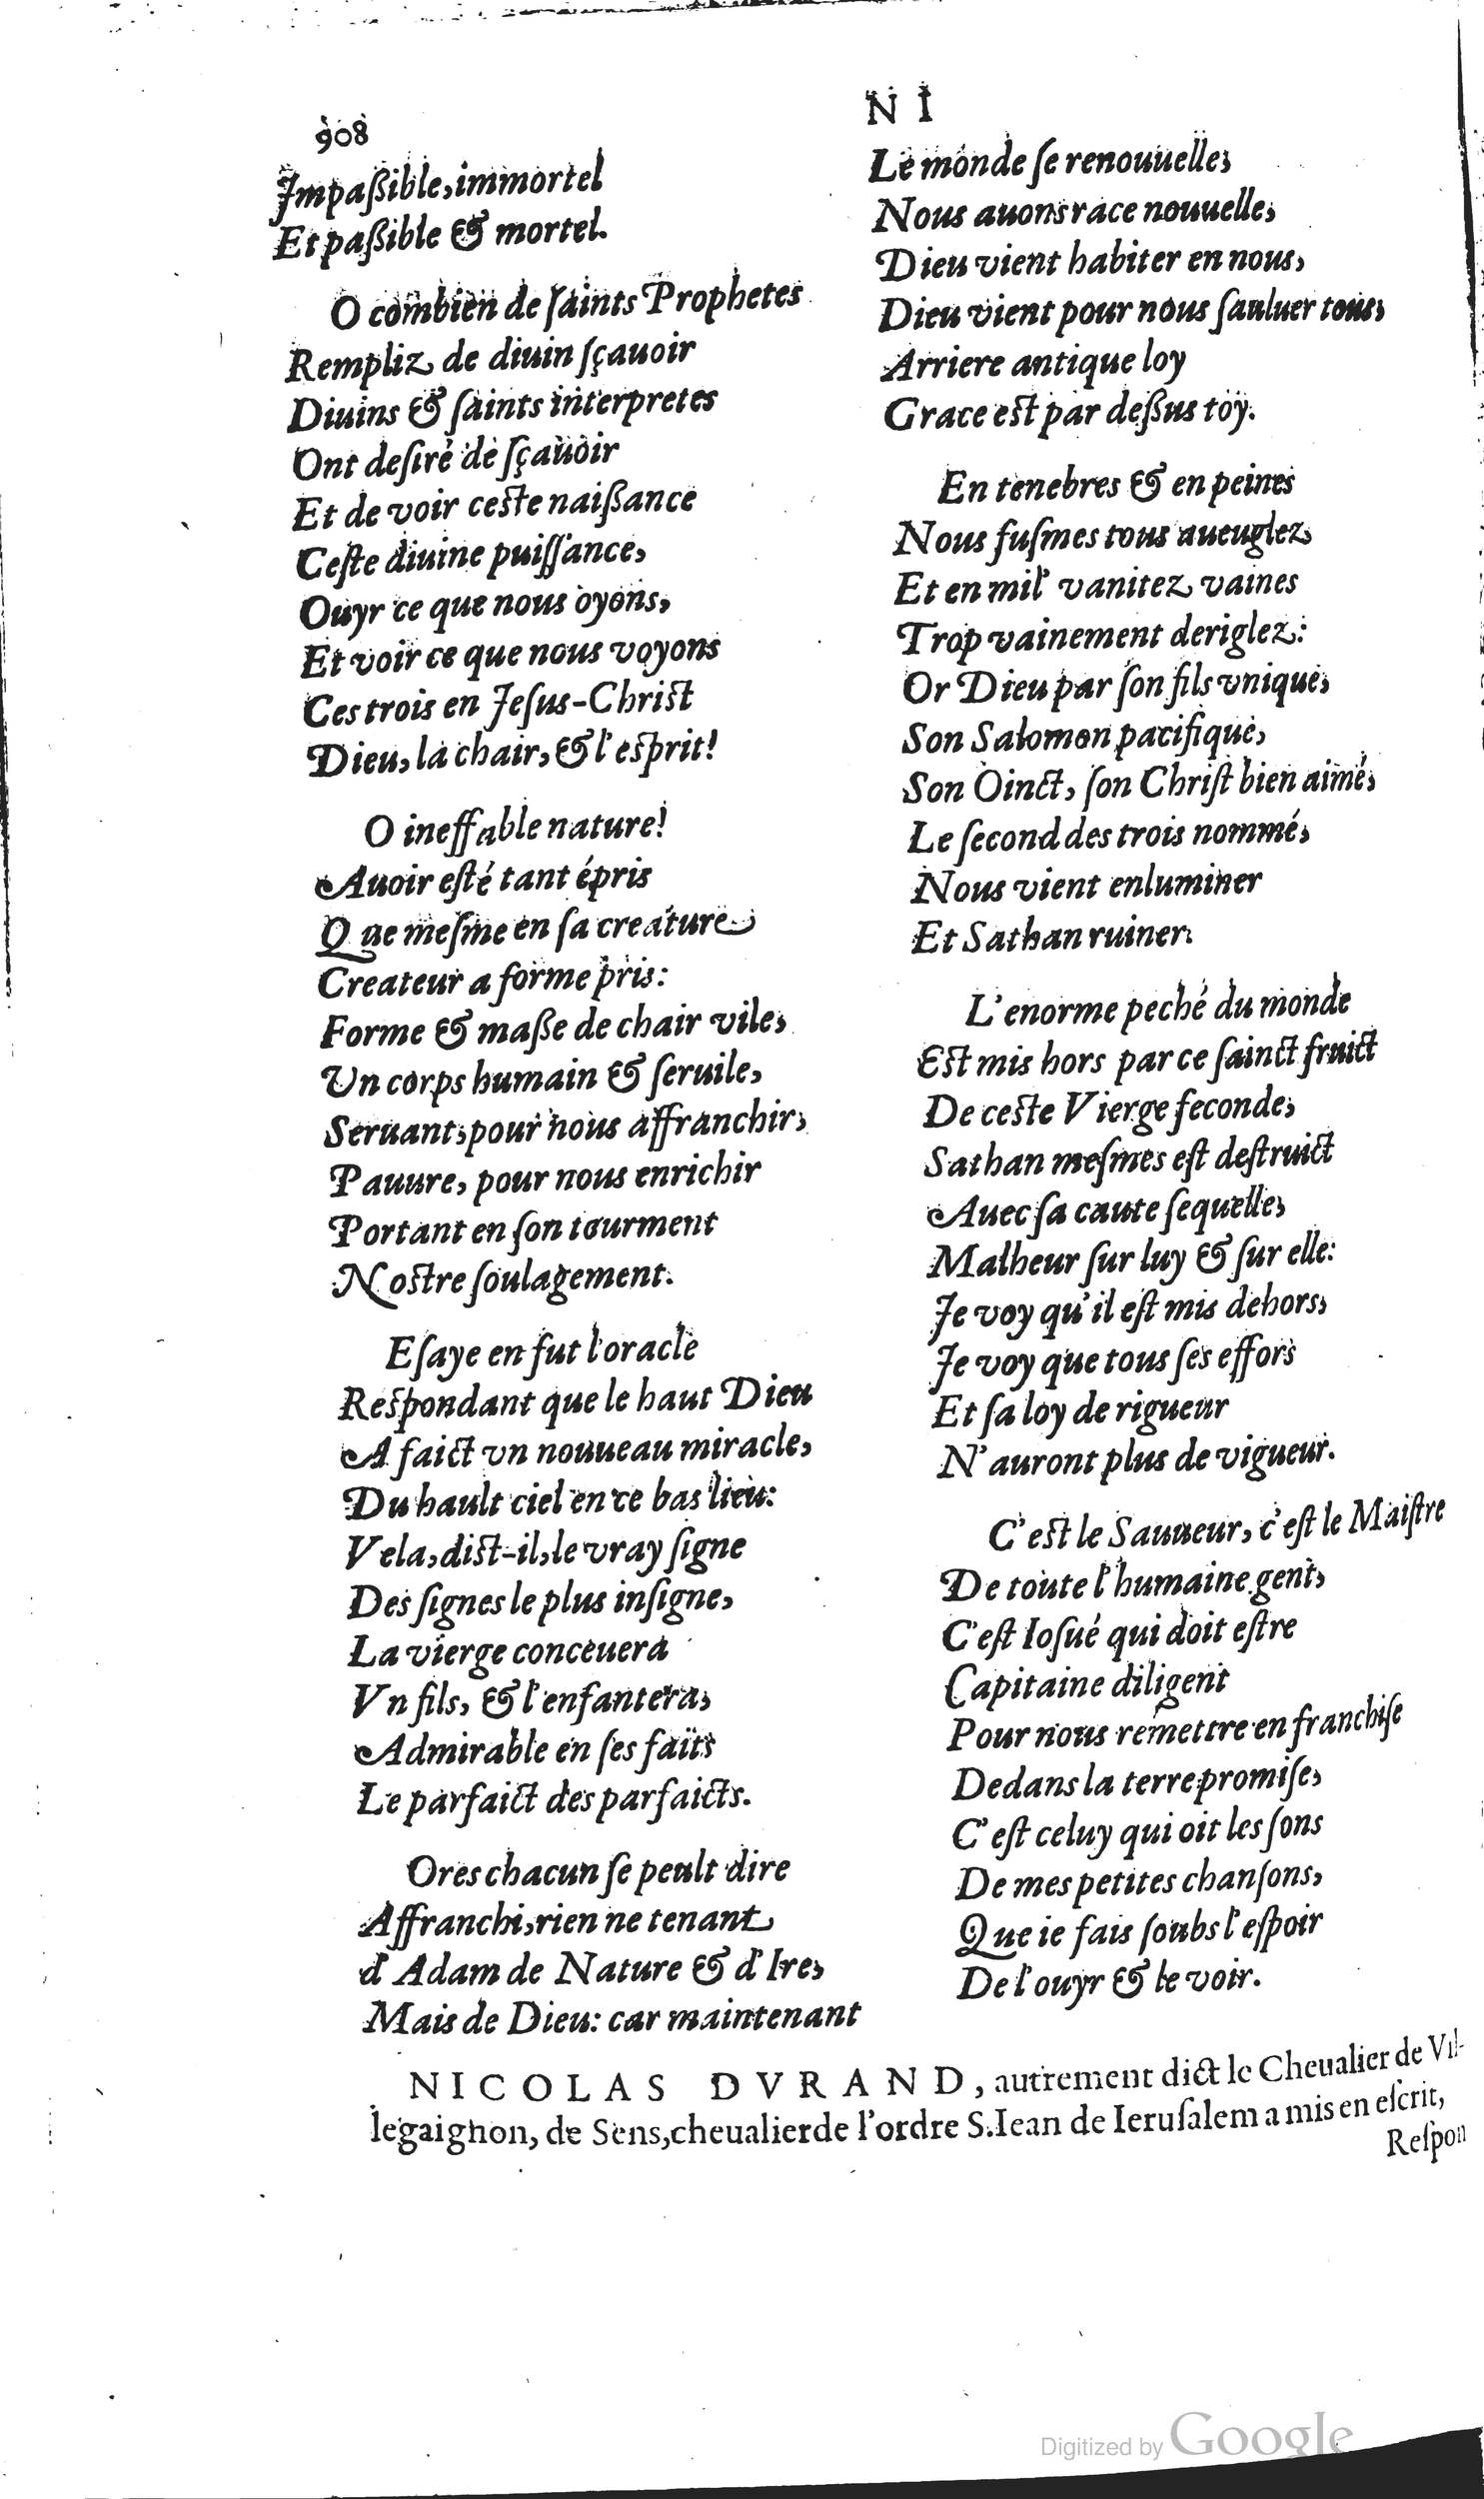 908
N I
Impaßible, immortel
Et paßible & mortel.
O combien de ſaints Prophetes
Rempliz de diuin ſçauoir
Diuins & ſaints interpretes
Ont deſiré de ſçauoir
Et de voir ceſte naißance
Ceſte diuine puiſſance,
Ouyr ce que nous oyons,
Et voir ce que nous voyons
Ces trois en Jeſus-Chriſt
Dieu, la chair, & l'eſprit!
O ineffable nature!
Auoir eſté tant épris
Que meſme en ſa creature
Createur a forme pris:
Forme & maße de chair vile,
Un corps humain & ſeruile,
Seruant, pour nous affranchir,
Pauure, pour nous enrichir
Portant en ſon tourment
Noſtre ſoulagement.
Eſaye en fut l'oracle
Reſpondant que le haut Dieu
A faict vn nouueau miracle,
Du hault ciel en ce bas lieu:
Vela, diſt-il, le vray ſigne
Des ſignes le plus inſigne,
La vierge conceuera
Vn fils, & l'enfantera,
Admirable en ſes faits
Le parfaict des parfaicts.
Ores chacun ſe peult dire
Affranchi, rien ne tenant
d'Adam de Nature & d'Ire,
Mais de Dieu: car maintenant
Le monde ſe renouuelle,
Nous auons race nouuelle,
Dieu vient habiter en nous,
Dieu vient pour nous ſauluer tous,
Arriere antique loy
Grace eſt par deßus toy.
En tenebres & en peines
Nous fuſmes tous aueuglez
Et en mil' vanitez vaines
Trop vainement deriglez:
Or Dieu par ſon fils vnique,
Son Salomon pacifique,
Son Oinct, ſon Chriſt bien aimé,
Le ſecond des trois nommé,
Nous vient enluminer
Et Sathan ruiner.
L'enorme peché du monde
Eſt mis hors par ce ſainct fruict
De ceſte Vierge feconde,
Sathan meſmes eſt deſtruict
Auec ſa caute ſequelle,
Malheur ſur luy & ſur elle:
Je voy qu'il eſt mis dehors,
Je voy que tous ſes effors
Et ſa loy de rigueur
N'auront plus de vigueur.
C'eſt le Sauueur, c'eſt le Maiſtre
De toute l'humaine gent,
C'eſt Ioſué qui doit eſtre
Capitaine diligent
Pour nous remettre en franchiſe
Dedans la terre promiſe,
C'eſt celuy qui oit les ſons
De mes petites chanſons,
Que ie fais ſoubs l'eſpoir
De l'ouyr & le voir.
NICOLAS DVRAND, autrement dict le Cheualier de Vil-
legaignon, de Sens, cheualier de l'ordre S. Iean de Ieruſalem a mis en eſcrit,
Reſpon
Digitized by Google